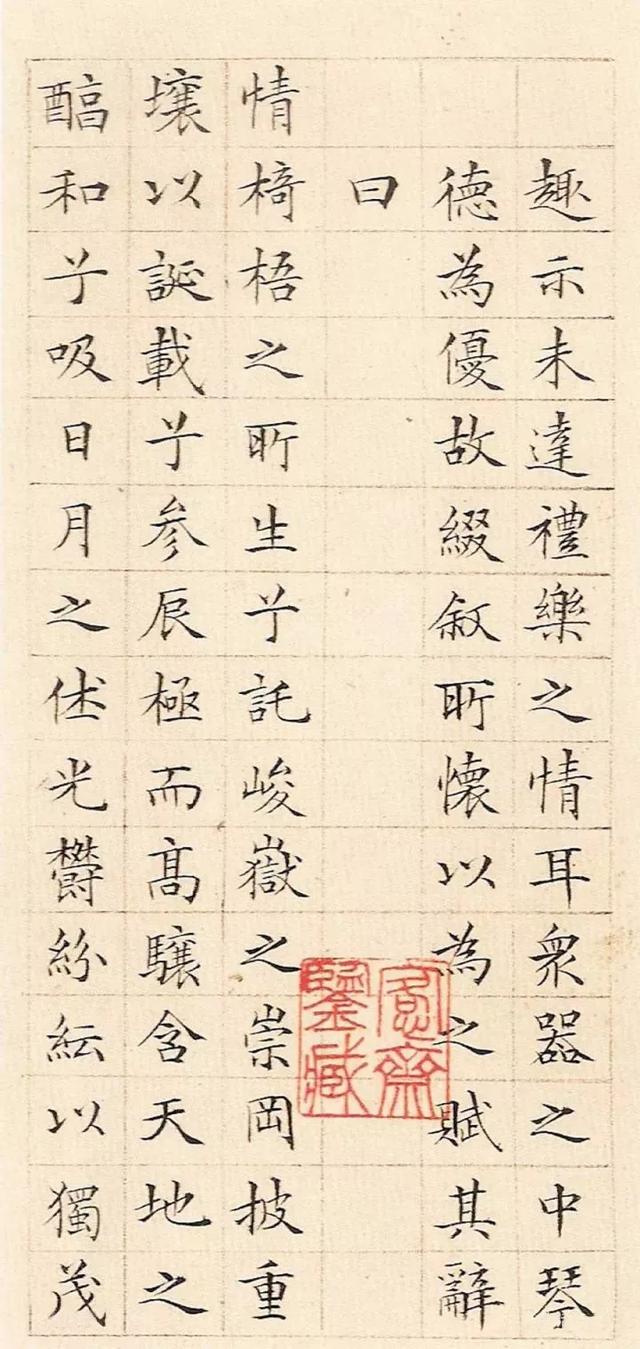 趣示未達禮樂之情耳衆器之中琴
德為優故綴叙所懷以為之賦其辭
曰
情椅梧之所生兮託峻嶽之崇岡披重
壤以誕載兮参辰極而髙驤含天地之
醕和兮吸日月之休光鬱紛紜以獨茂
愙齋
鑒藏